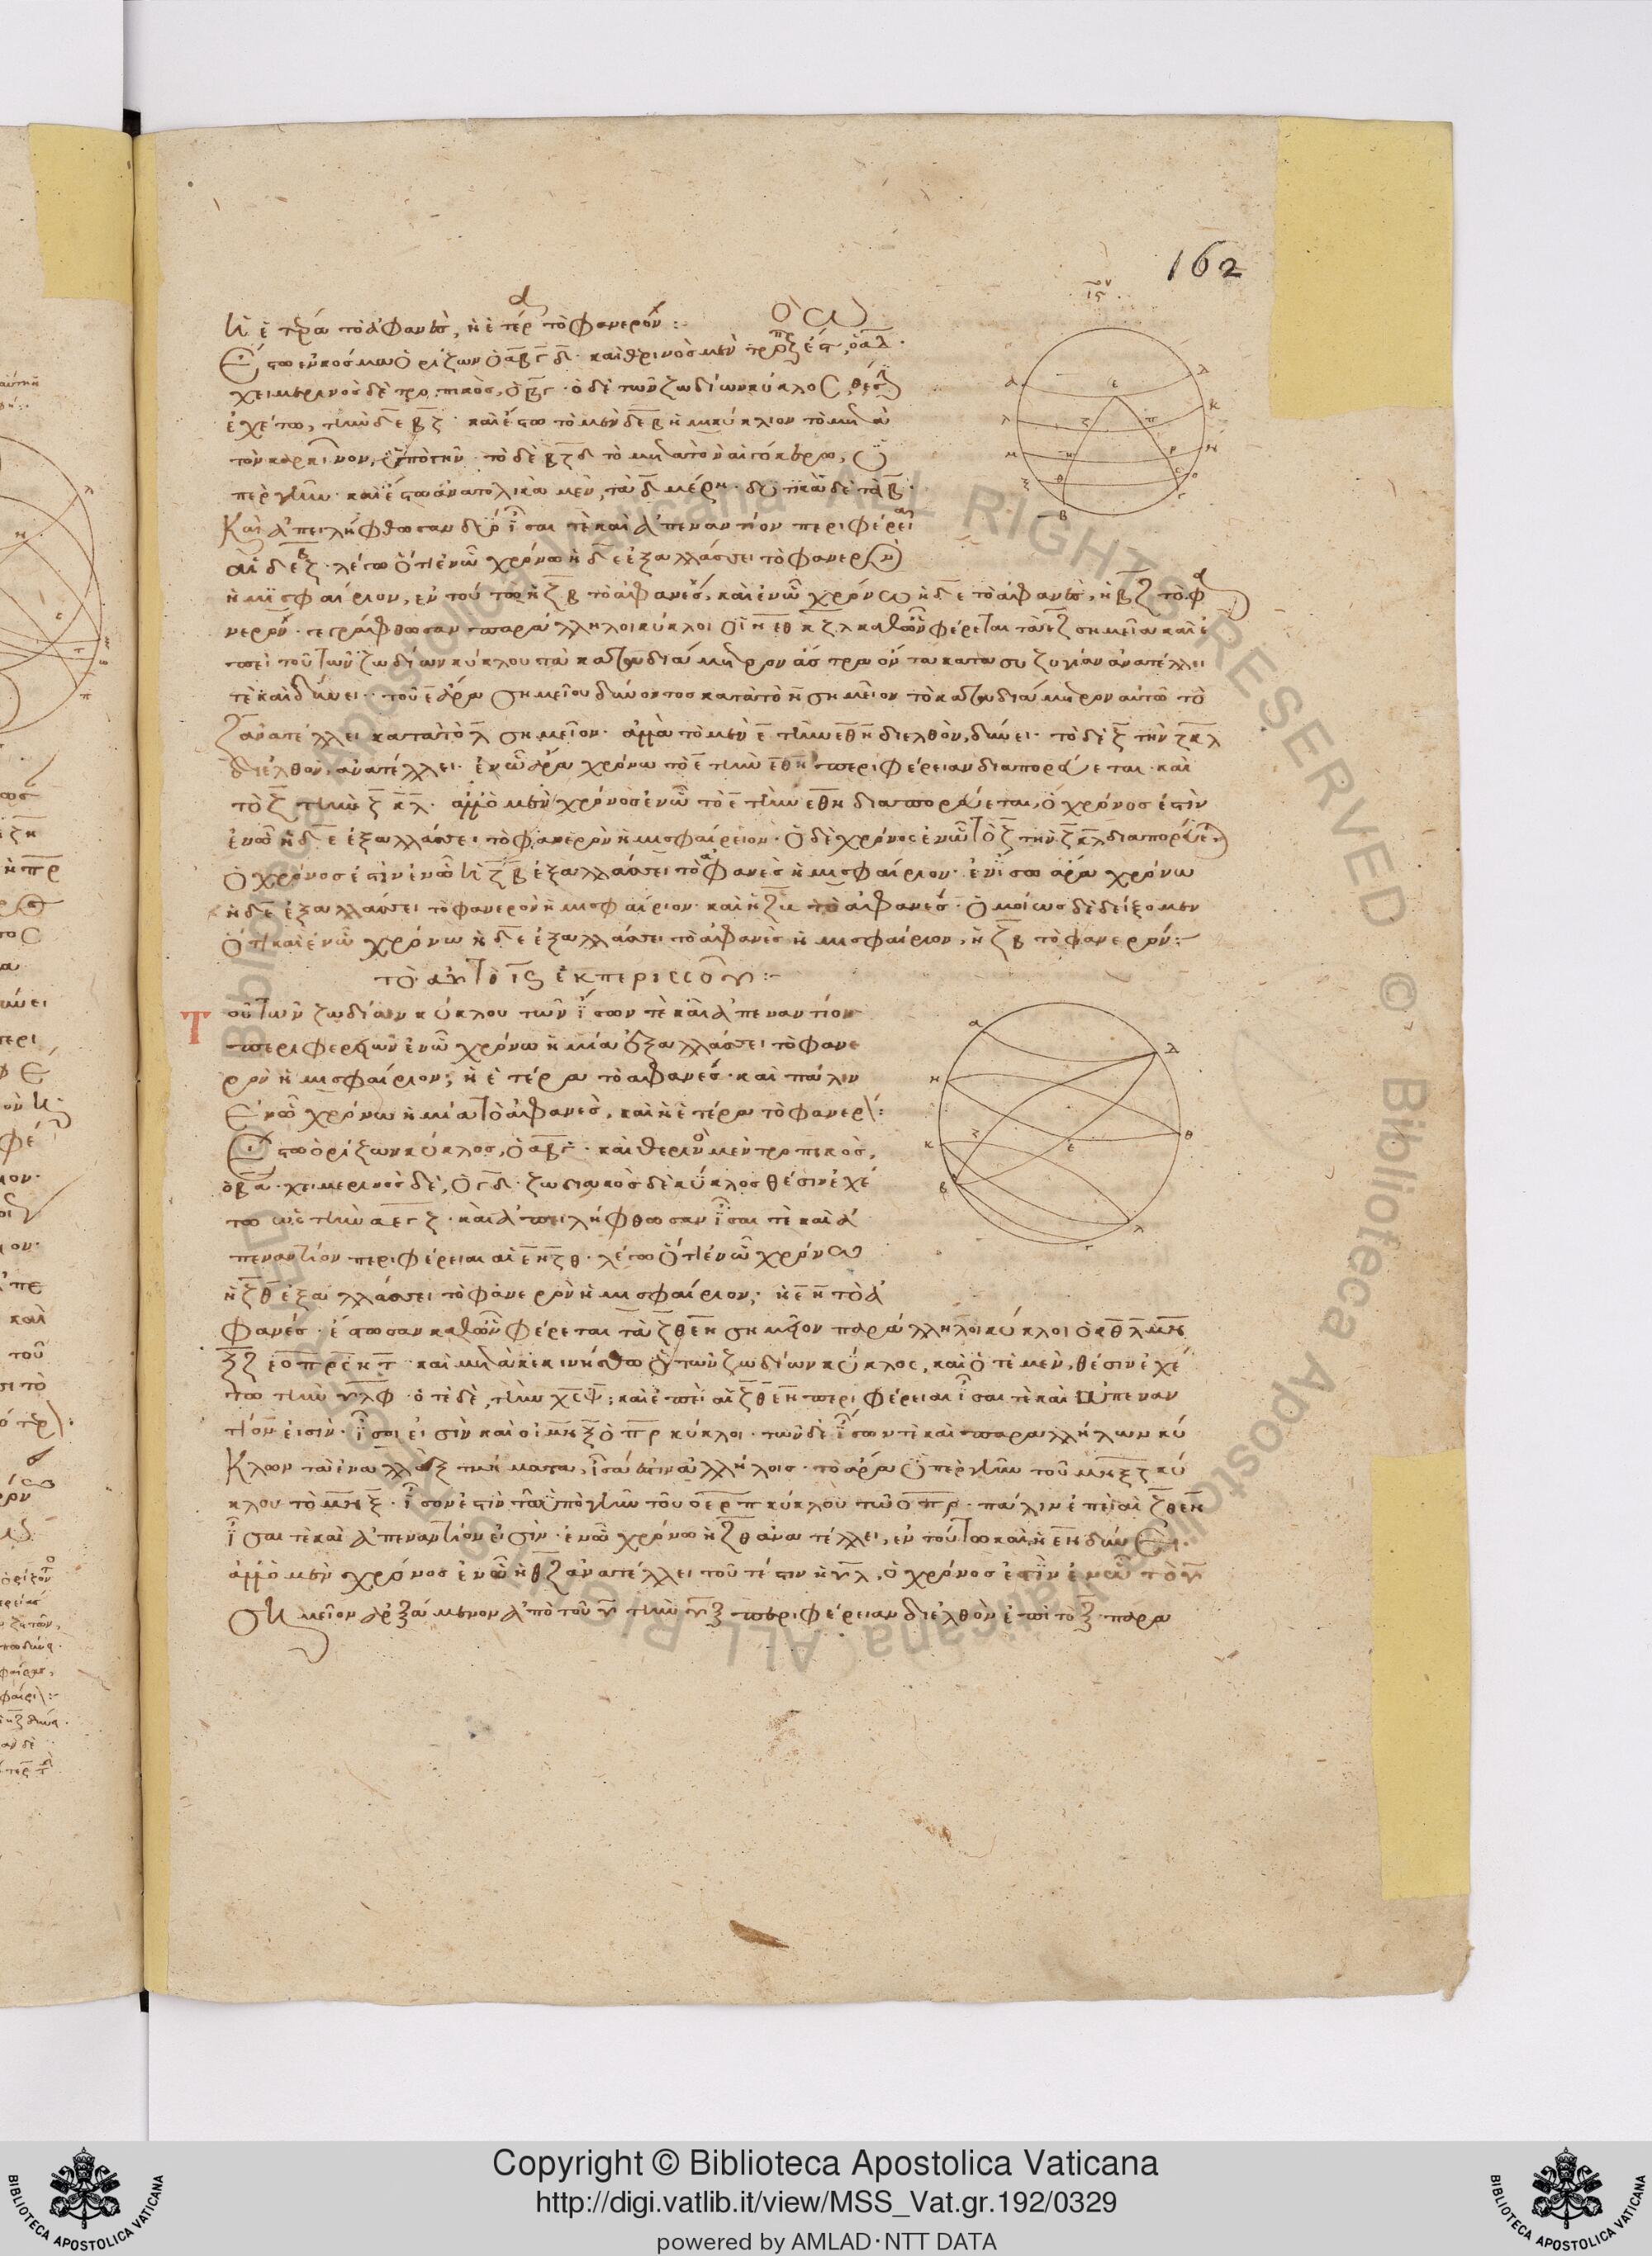 162
ις
ἡ ἑτέρα τὸ ἀφανὲς, ἡ ἑτέρα τὸ φανερόν :
Ἔστω ἐν κόσμω ὁρίζων ὁ αβγδ · καὶ θερινὸς μὲν τροπικὸς ἔστω, ὁ αδ ·
χειμερινὸς δὲ τροπικὸς, ὁ βγ · ὁ δὲ τῶν ζωδίων κύκλος, θέσιν
ἐχέτω, τὴν δεβζ · καὶ ἔστω τὸ μὲν δεβ ἡμικύκλιον τὸ μετὰ
τὸν καρκίνον, ὑπὸ γῆν · τὸ δὲ βζδ τὸ μετὰ τὸν αἰγόκερω, ὑ
πὲρ γῆν · καὶ ἔστω ἀνατολικὰ μὲν, τὰ δ μέρη · δυτικὰ δὲ τὰ β ·
Καὶ ἀπειλήφθωσαν δύο ἴσαι τὲ καὶ ἀπεναντίον περιφέρειαι
αἱ δε βζ · λέγω ὅτι ἐν ὧ χρόνω ἡ δε ἐξαλλάσσει τὸ φανερὸν
ἡμισφαίριον, ἐν τούτω ἡ ζβ τὸ ἀφανές, καὶ ἐν ὧ χρόνω ἡ δε τὸ ἀφανὲς, ἡ βζ τὸ φα
νερόν · γεγράφθωσαν παράλληλοι κύκλοι οἱ ηεθ κζλ καθ' ὧν φέρεται τὰ εζ σημεῖα καὶ ἐ
πεὶ τοῦ τῶν ζωδίων κύκλου τὰ κατὰ διάμετρον ἄστρα ὄντα κατὰ συζυγίαν ἀνατέλλει
τὲ καὶ δύνει · τοῦ ε ἄρα σημείου δύνοντος κατὰ τὸ η σημεῖον τὸ κατὰ διάμετρον αὐτῶ τὸ
ζ ἀνατέλλει κατὰ τὸ λ σημεῖον · ἀλλὰ τὸ μὲν ε τὴν εθη διελθὸν, δύνει · τὸ δὲ ζ τὴν ζκλ
διελθὸν, ἀνατέλλει · ἐν ὧ ἄρα χρόνω τὸ ε τὴν εθη περιφέρειαν διαπορεύεται · καὶ
τὸ ζ τὴν ζκλ · ἀλλ' ὁ μὲν χρόνος ἐν ὧ τὸ ε τὴν εθη διαπορεύεται, ὁ χρόνος ἐστὶν
ἐν ὧ ἡ δε ἐξαλλάσσει τὸ φανερὸν ἡμισφαίριον · Ὁ δὲ χρόνος ἐν ὧ τὸ ζ τὴν ζκλ διαπορεύεται
ὁ χρόνος ἐστὶν ἐν ὧ ἡ ζβ ἐξαλλάσσει τὸ ἀφανὲς ἡμισφαίριον · ἐν ἴσω ἄρα χρόνω
ἡ δε ἐξαλλάσσει τὸ φανερὸν ἡμισφαίριον · καὶ ἡ ζβ τὸ ἀφανές · Ὁμοίως δὲ δείξομεν
ὅτι καὶ ἐν ὧ χρόνω ἡ δε ἐξαλλάσσει τὸ ἀφανὲς ἡμισφαίριον, ἡ ζβ τὸ φανερόν :
τὸ αὐτὸ ις ἐκ περισσοῦ :
Τοῦ τῶν ζωδίων κύκλου τῶν ἴσων τὲ καὶ ἀπεναντίον
περιφερειῶν ἐν ὧ χρόνω ἡ μία ἐξαλλάσσει τὸ φανε
ρὸν ἡμισφαίριον, ἡ ἑτέρα τὸ ἀφανές · καὶ πάλιν
Ἐν ὧ χρόνω ἡ μία τὸ ἀφανὲς, καὶ ἡ ἑτέρα τὸ φανερόν :
Ἔστω ὁρίζων κύκλος, ὁ αβγ · καὶ θερινὸς μὲν τροπικὸς,
ὁ βα · χειμερινὸς δὲ, ὁ γδ · ζωδιακὸς δὲ κύκλος θέσιν ἐχέ
τω ὡς τὴν αεγζ · καὶ ἀπειλήφθωσαν ἴσαι τὲ καὶ ἀ
πεναντίον περιφέρειαι αἱ εη ζθ · λέγω ὅτι ἐν ὧ χρόνω
ἡ ζθ ἐξαλλάσσει τὸ φανερὸν ἡμισφαίριον, ἡ εη τὸ ἀ
φανές · ἔστωσαν καθ' ὧν φέρεται τὰ ζθεη σημεῖον παράλληλοι κύκλοι ὁ κθλ μη
ξζ εοπρ ςητ · καὶ μετακεκινήσθω ὁ τῶν ζωδίων κύκλος, καὶ ὁ τὲ μὲν, θέσιν ἐχέ
τω τὴν υλφ · ὁ τὲ δὲ, τὴν χεψ · καὶ ἐπεὶ αἱ ζθ εη περιφέρειαι ἴσαι τὲ καὶ ἀπεναν
τίον εἰσὶν · ἴσοι εἰσὶν καὶ οἱ μηξ οπρ κύκλοι · τῶν δὲ ἴσων τὲ καὶ παραλλήλων κύ
κλων τὰ ἐναλλὰξ τμήματα, ἴσα ἐστὶν ἀλλήλοις · τὸ ἄρα ὑπὲρ γῆν τοῦ μηξζ κύ
κλου τὸ μηξ · ἴσον ἐστὶν τῶ ὑπὸ γῆν τοῦ οερπ κύκλου τῶ οπρ · πάλιν ἐπεὶ αἱ ζθ εη
ἴσαι τὲ καὶ ἀπεναντίον εἰσὶν · ἐν ὧ χρόνω ἡ ζθ ἀνατέλλει, ἐν τούτω καὶ ἡ εη δύνει ·
ἀλλ' ὁ μὲν χρόνος ἐν ὧ ἡ θζ ἀνατέλλει τοῦτέστιν ἡ υλ, ὁ χρόνος ἐστὶν ἐν ὧ τὸ υ
σημεῖον ἀρξάμενον ἀπὸ τοῦ υ τὴν υξ περιφέρειαν διελθὸν ἐπὶ τὸ ξ παρα
Copyright © Biblioteca Apostolica Vaticana
http://digi.vatlib.it/view/MSS_Vat.gr.192/0329
powered by AMLAD·NTT DATA
BIBLIOTECA APOSTOLICA VATICANA
BIBLIOTECA APOSTOLICA VATICANA